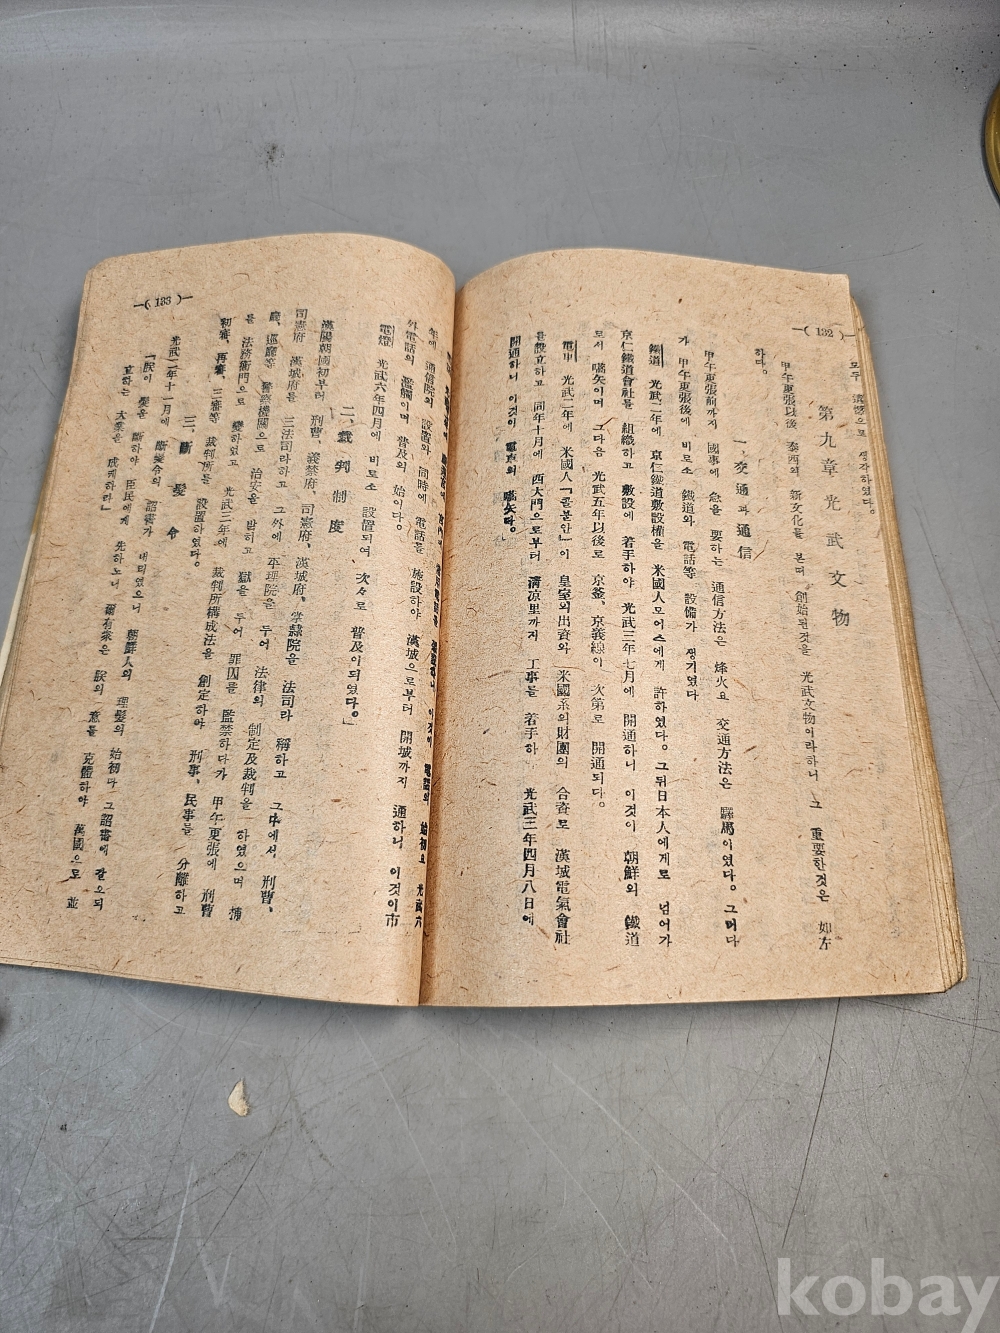 —( 132 )—
모두 遺憾으로 생각하였다。
第九章 光武文物
甲午更張以後 泰西의 新文化를 본며 創始된것을 光武文物이라하니 그 重要한것은 如左
하다。
一、交通과 通信
甲午更張前까지 國事에 急을 要하는 通信方法은 烽火요 交通方法은 驛馬이였다。그러다
가 甲午更張後에 비로소 鐵道와 電話等 設備가 생기였다
鐵道 光武二年에 京仁鐵道敷設權을 米國人모어스에게 許하였다。그뒤日本人에게로 넘어가
京仁鐵道會社를 組織하고 敷設에 着手하야 光武三年七月에 開通하니 이것이 朝鮮의 鐵道
로서 嚆矢이며 그다음 光武五年以後로 京釜、京義線이 次第로 開通되다。
電車 光武二年에 米國人「콜불안」이 皇室의出資와 米國系의財團의 合資로 漢城電氣會社
를設立하고 同年十月에 西大門으로부터 淸凉里까지 工事를 着手하 光武三年四月八日에
開通하니 이것이 電車의 嚆矢다。
—( 133 )—
이것이 電話의 始初요 光武六
年에 通信院의 設置와 同時에 電話를 施設하야 漢城으로부터 開城까지 通하니 이것이市
外電話의 濫觴이며 普及의 始이다。
電燈 光武六年四月에 비로소 設置되여、次々로 普及이되였다。」
二、裁判制度
漢陽朝國初부터 刑曹、義禁府、司憲府、漢城府、掌隷院을 法司라 稱하고 그中에서 刑曹、
司憲府 漢城府를 三法司라하고 그外에 平理院을 두어 法律의 制定及裁判을 하였으며 捕
廳、巡廳等 警察機關으로 治安을 밝히고 獄을 두어 罪囚를 監禁하다가 甲午更張에 刑曹
를 法務衙門으로 變하였고 光武三年에 裁判所構成法을 創定하야 刑事、民事를 分離하고
初審、再審、三審等 裁判所를 設置하였다。
三、斷髮令
光武二年十一月에 斷髮令의 詔書가 내리였으니 朝鮮人의 理髮의 始初다 그詔書에 갈으되
「朕이 髮을 斷하야 臣民에게 先하노니 爾有衆은 朕의 意를 克體하야 萬國으로 並
立하는 大業을 成케하라」